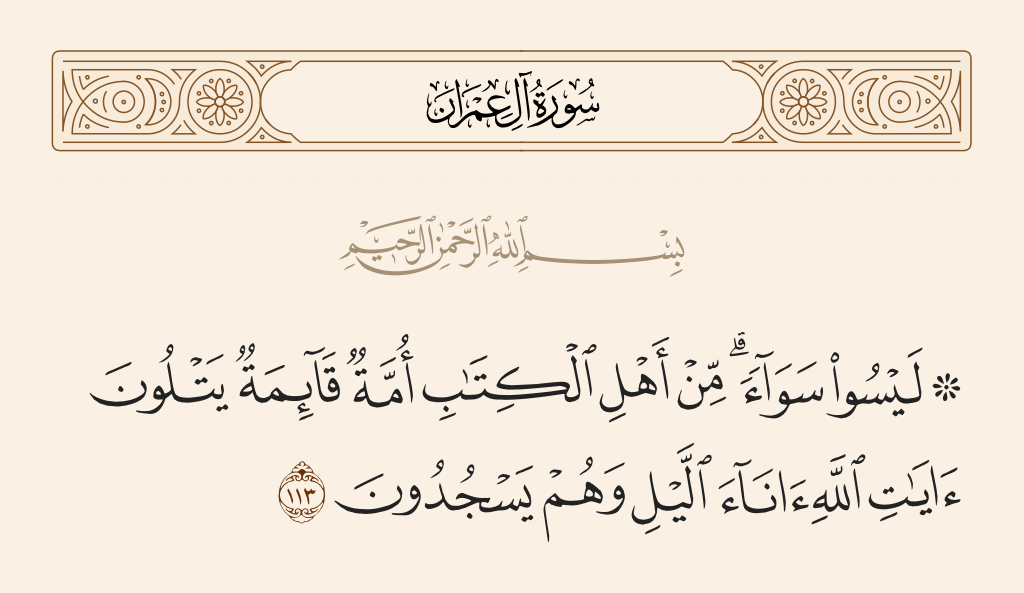 سُورَةُ آلِ عِمْرَانَ
بِسْمِ ٱللَّهِ ٱلرَّحْمَٰنِ ٱلرَّحِيمِ
۞ لَيْسُوا۟ سَوَآءً ۗ مِّنْ أَهْلِ ٱلْكِتَٰبِ أُمَّةٌ قَآئِمَةٌ يَتْلُونَ
ءَايَٰتِ ٱللَّهِ ءَانَآءَ ٱلَّيْلِ وَهُمْ يَسْجُدُونَ ١١٣